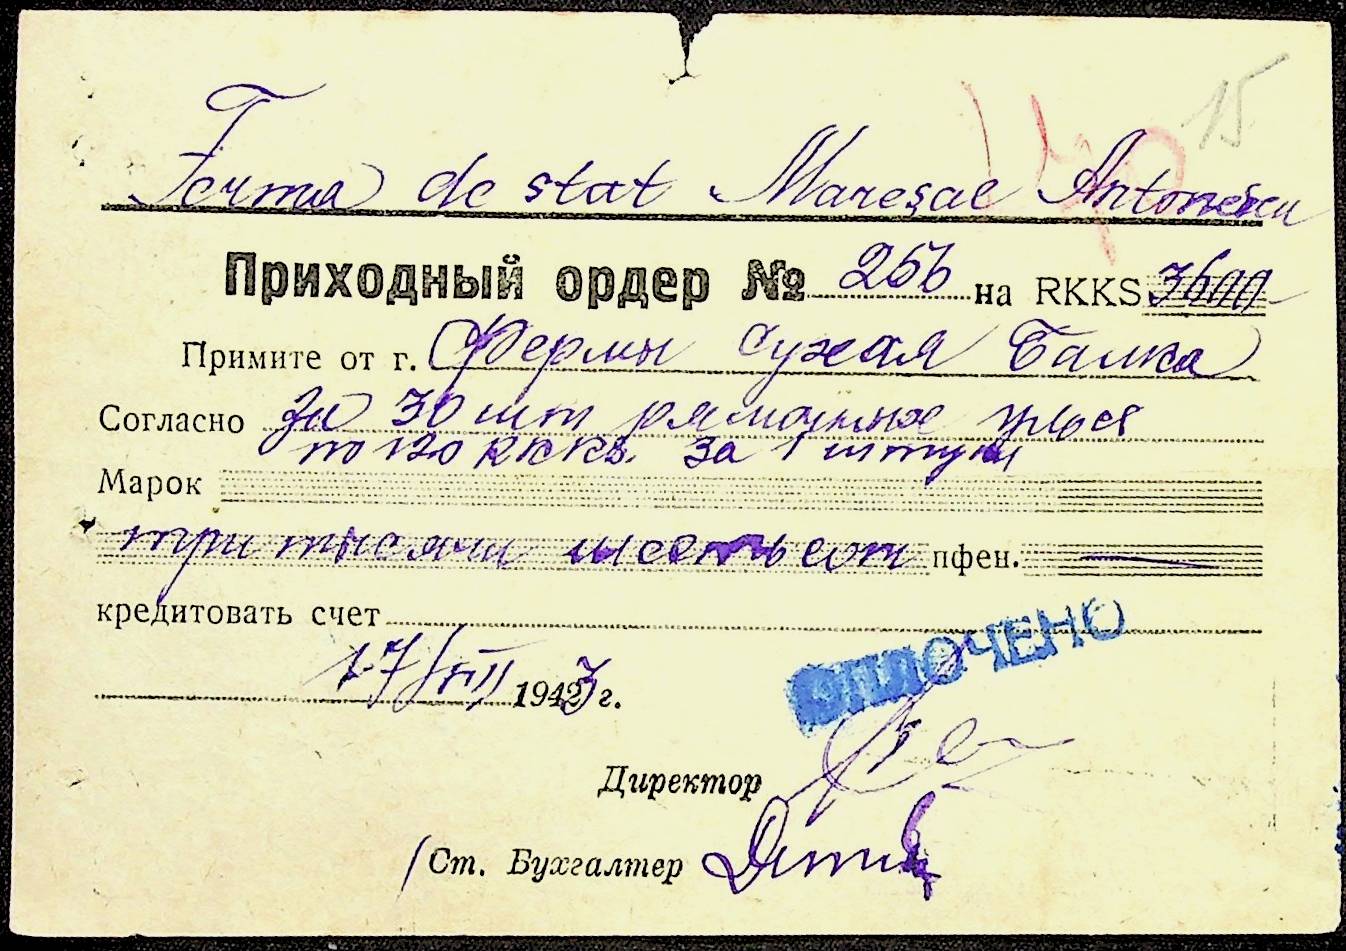 15
Ferma de stat Mareşal Antonescu
Приходный ордер № 266 на RKKS 3600
Примите от г. Фермы Сухая Балка
Согласно За 30 шт рамочных ульев
по 120 RKKS. за 1 штуку
Марок
три тысячи шестьсот пфен. —
кредитовать счет
17/VIII 1943 г.
ОПЛОЧЕНО
Директор
Ст. Бухгалтер